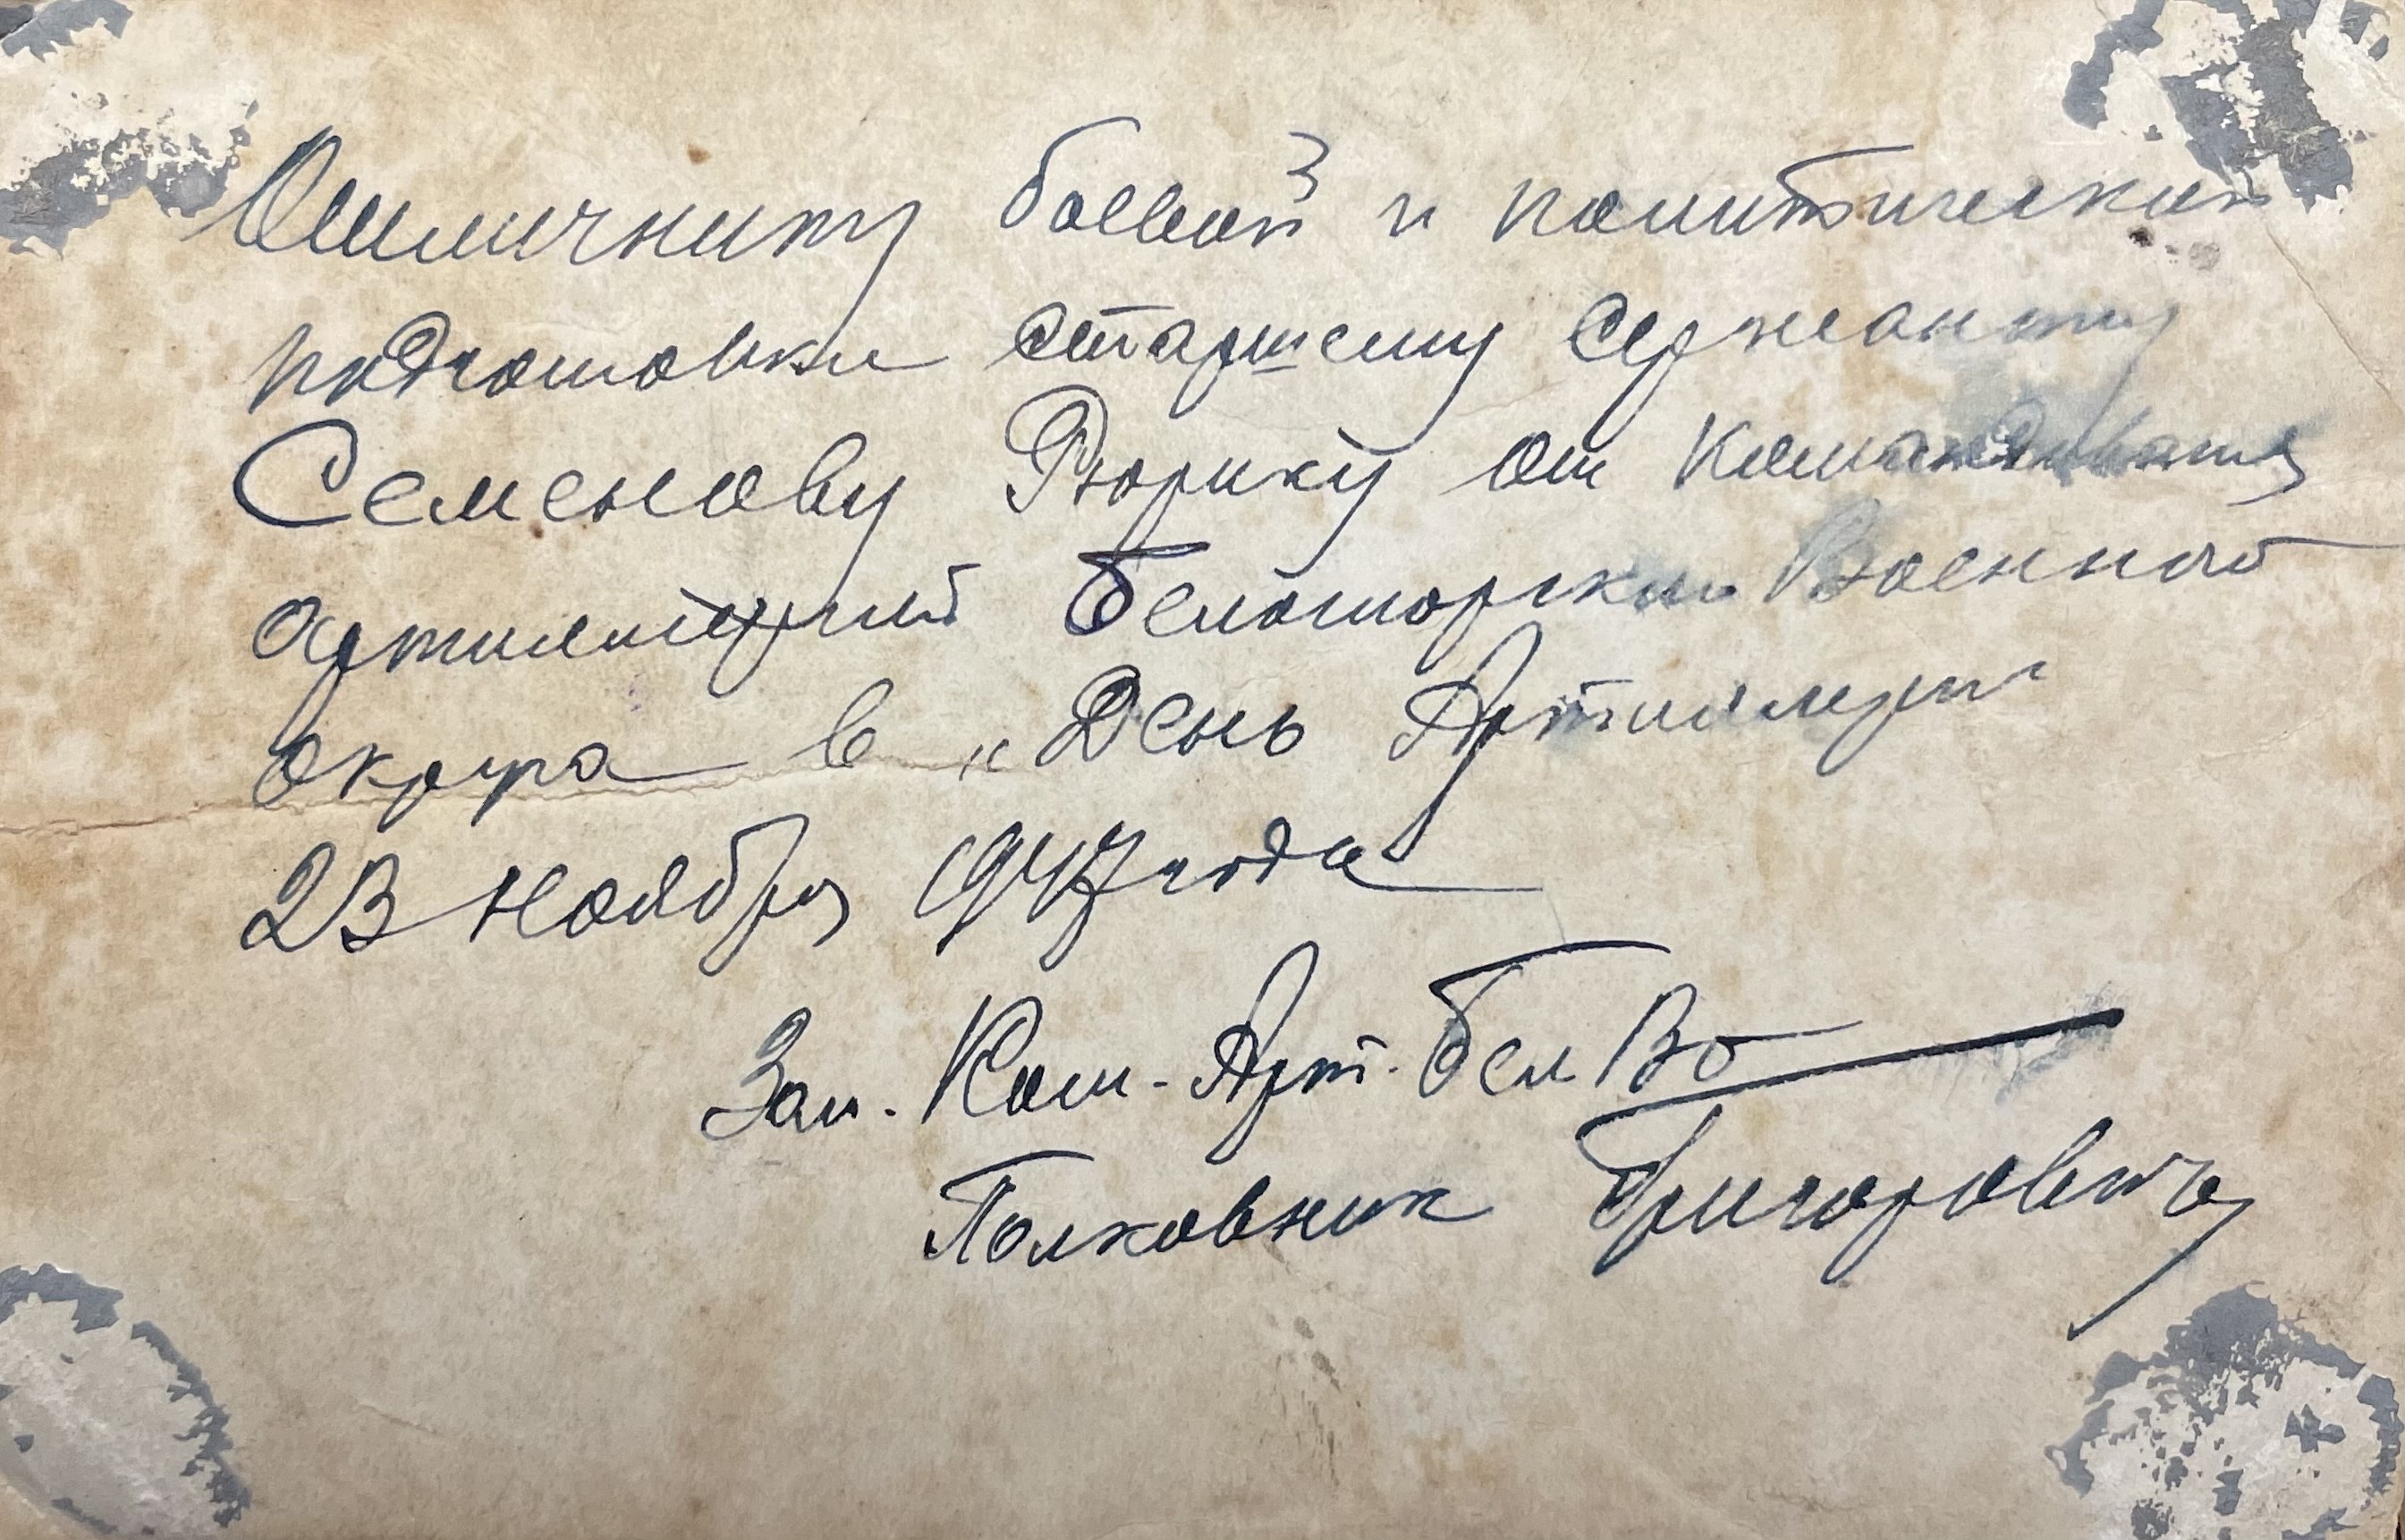 Отличнику боевой и политической
подготовки старшему сержанту
Семенову Рюрику от Командования
Артиллерией Беломорского Военного
округа в „День Артиллерии
23 ноября 1947 года
Зам. Ком. Арт. БелВо
Полковник Григорович